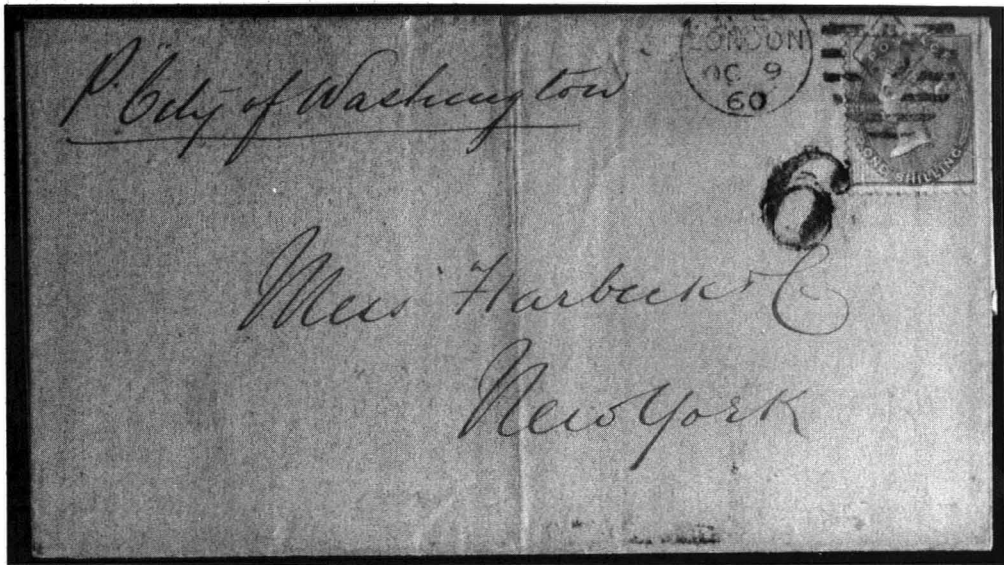 P. City of Washington
LONDON
OC 9
60
POSTAGE
ONE SHILLING
6
Mess Harbeck & C
New York